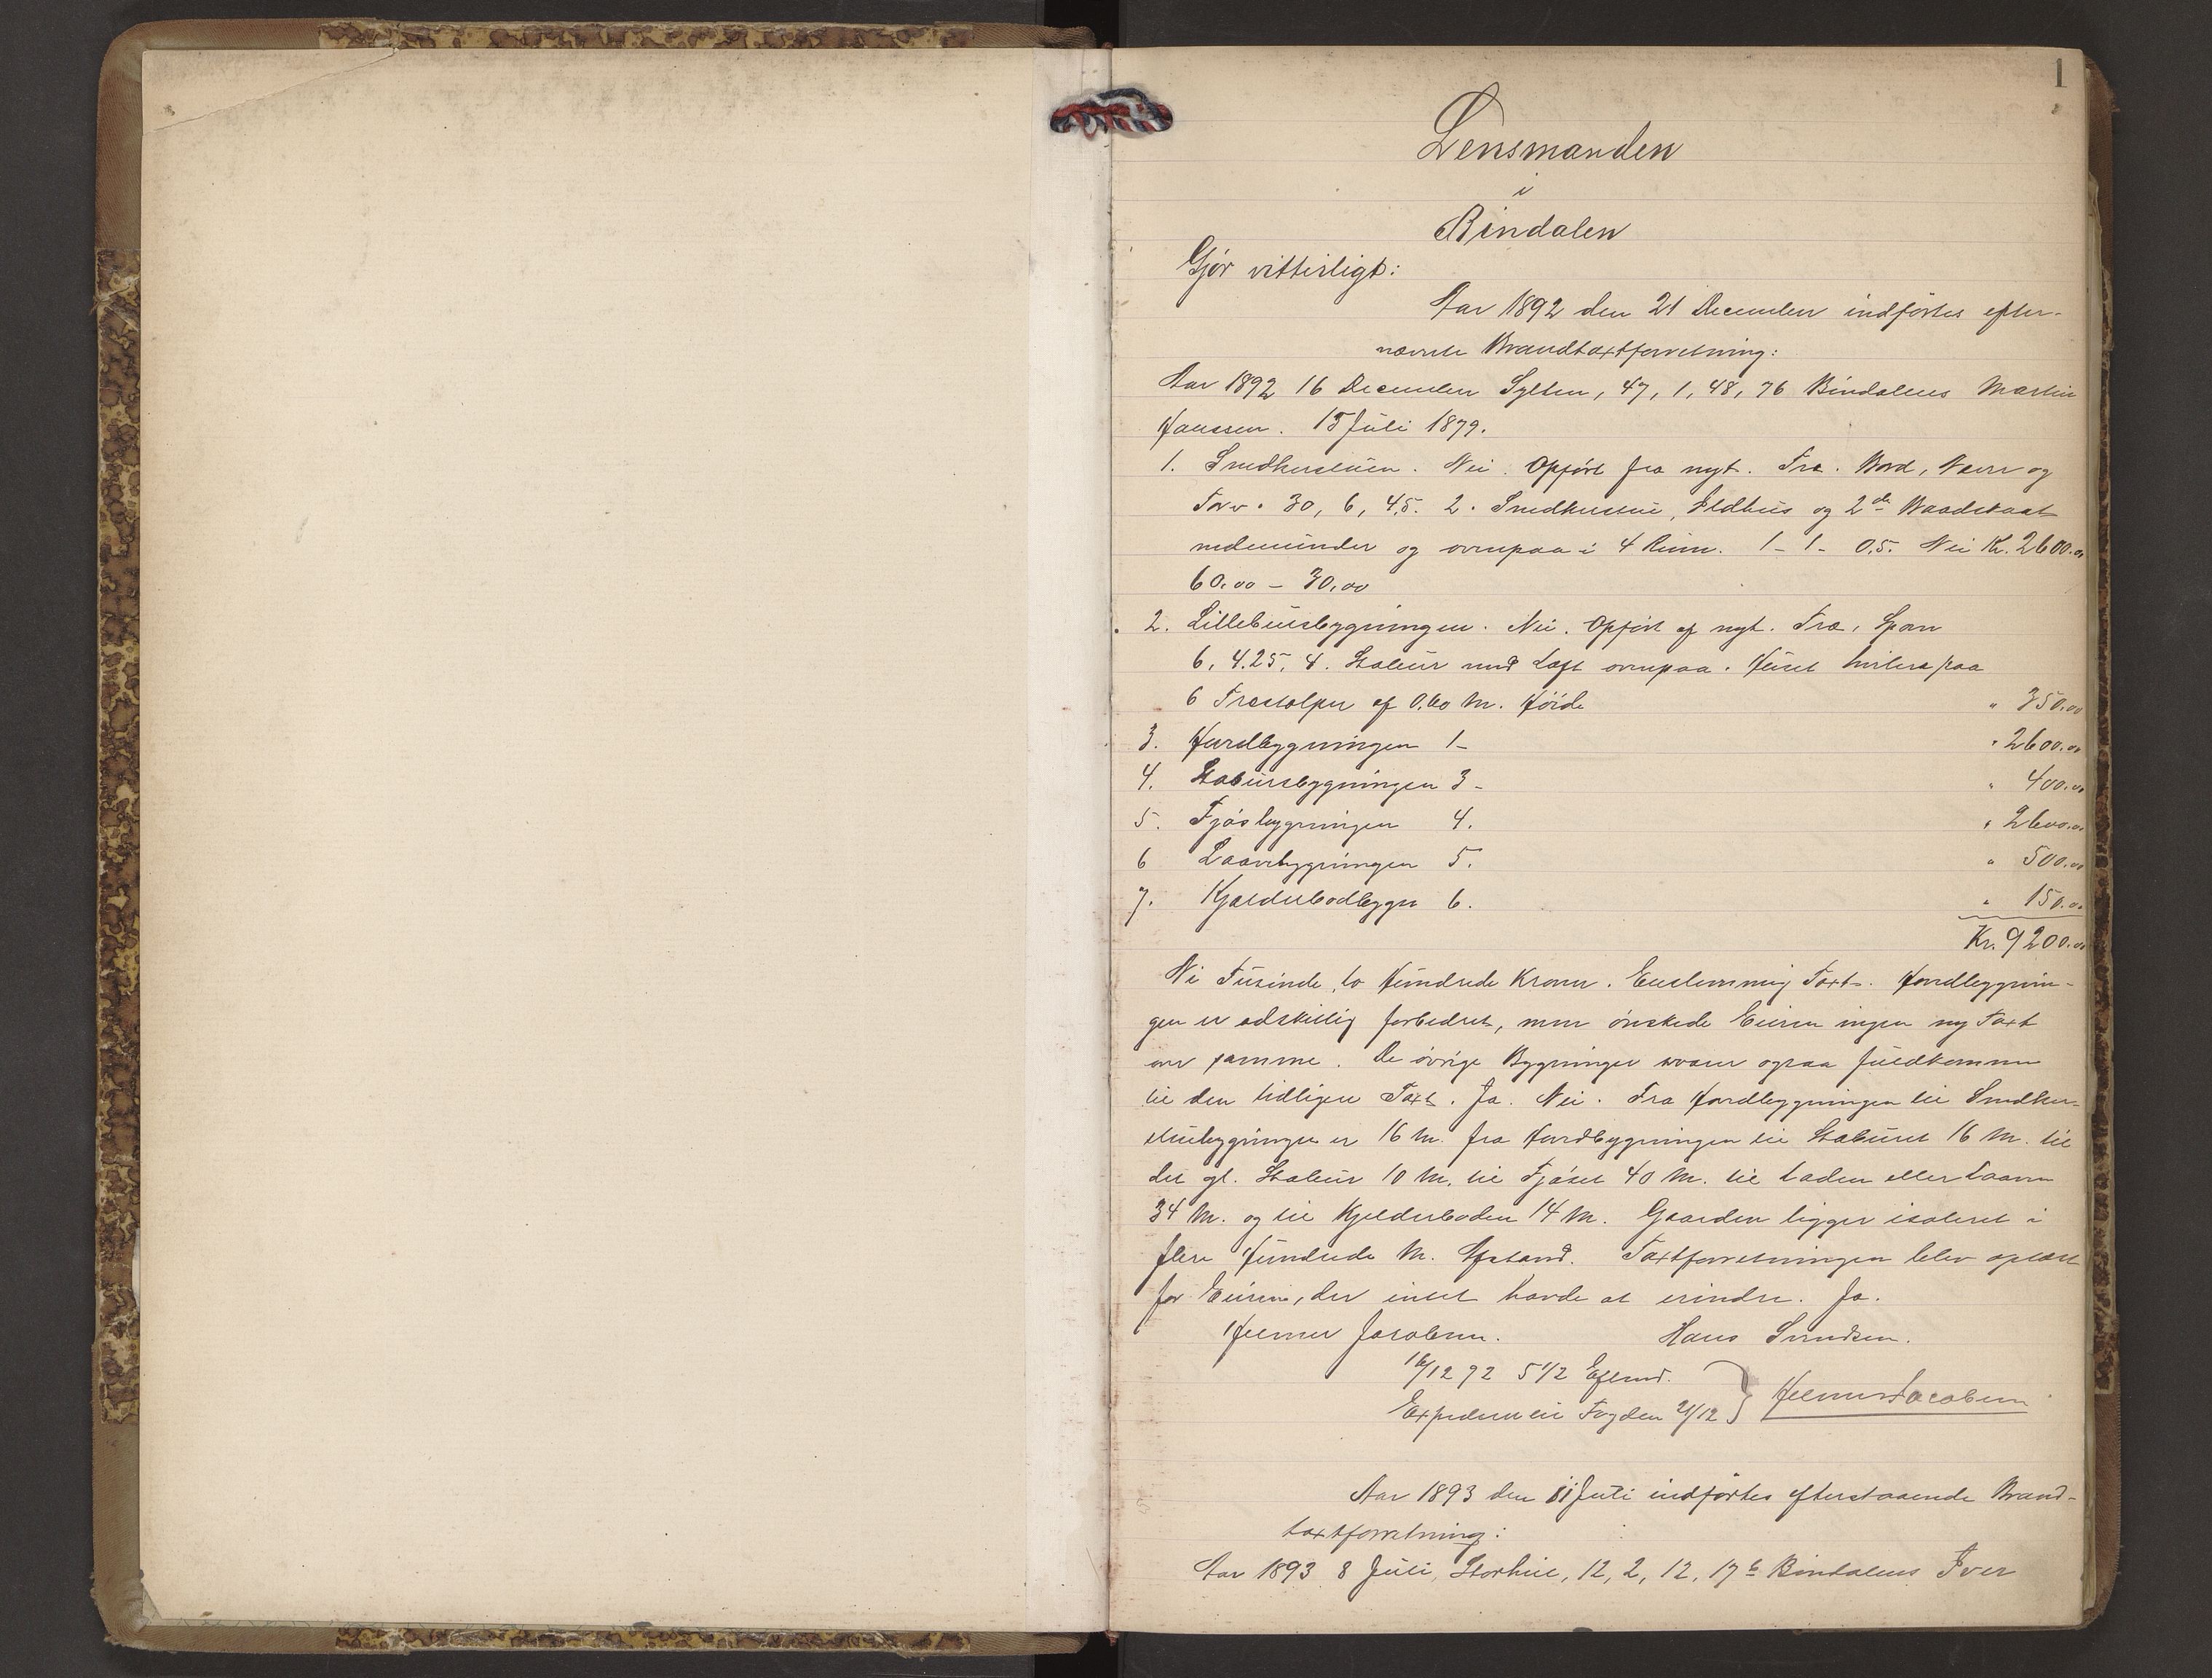 1
Lensmanden
i
Bindalen
Gjør vitterligt:
Aar 1892 den 21 December indførtes efter-
nævnte Brandtaxtforretning:
Aar 1892 16 December Sylten, 47, 1, 48, 76 Bindalens Martin
Hanssen. 15 Juli 1879.
1. Snedkerstuen. Nei. Opført fra nyt. Træ. Bord, Næver og
Torv. 30, 6, 4,5. 2. Snedkerstue, Ildhus og 2de
nedenunder og ovenpaa i 4 Rum. 1 - 1 - 0,5. Nei Kr. 2600.00
60.00 - 30.00
2. Nei. Opført af nyt. Træ, Spon
6, 4.25, 4. Stabur med Loft ovenpaa. Huset hviler paa
6 Træstolper af 0,60 M. Høide " 350.00
3. 1- " 2600.00
4. Stabursbygningen 3- " 400.00
5. Fjøsbygningen 4. " 2600.00
6 Laavebygningen 5. " 500.00
7. Kjælderbodbygn 6. " 150.00
Kr. 9200.00
Ni Tusinde, to Hundrede Kroner. Enstemmig Taxt. -
gen er adskillig forbedret, men ønskede Eieren ingen ny Taxt
over samme. De øvrige Bygninger svarer ogsaa fuldkommen
til den tidligere Taxt. Ja. Nei. Fra til Snedker-
stuebygningen er 16 M. fra til Staburet 16 M. til
det gl. Stabur 10 M. til Fjøset 40 M. til Laden eller Laaven
34 M. og til Kjelderboden 14 M. Gaarden ligger isoleret i
flere Hundrede M. Afstand. Taxtforretningen blev oplæst
for Eieren, der intet havde at erindre. Ja.
Jacobsen. Hans Svendsen.
16/12 92 5 1/2 Eftmd.
Expederet til Fogden 21/12 } Jacobsen
Aar 1893 den 11 Juli indførtes efterstaaende Brand-
taxtforretning:
Aar 1893 8 Juli, 12, 2, 12, 17b Bindalens Iver